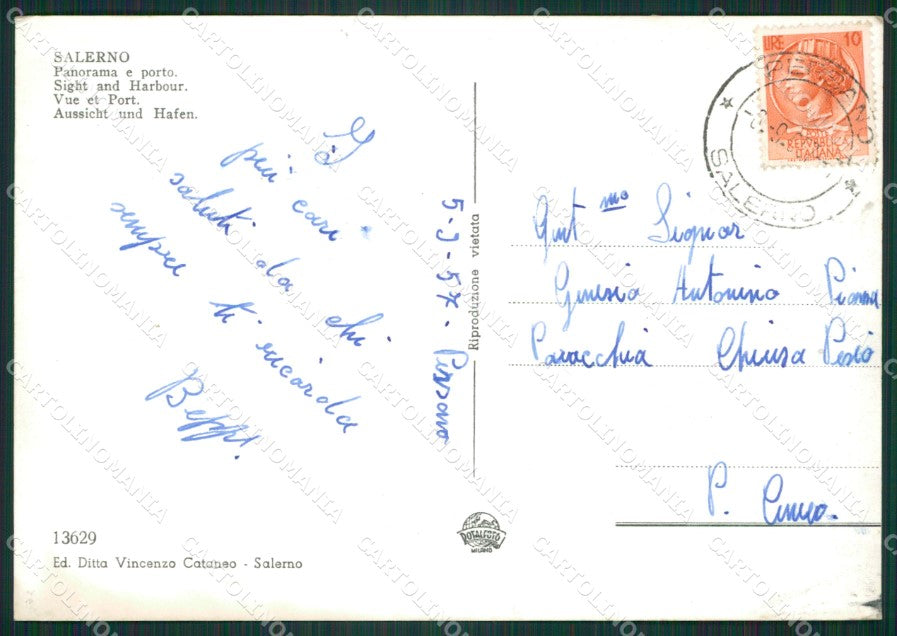 SALERNO
Panorama e porto.
Sight and Harbour.
Vue et Port.
Aussicht und Hafen.
I
più cari
saluti da chi
sempre ti ricorda
Beppi.
5-9-57. Pissano
Riproduzione vietata
LIRE 10
REPVBBLICA
ITALIANA
SALERNO
Gent.mo Signor
Antonino
Parrocchia Chiusa Pesio
P. Cuneo.
13629
Ed. Ditta Vincenzo Cataneo - Salerno
ROTALFOTO
MILANO
CARTOLINOMANIA